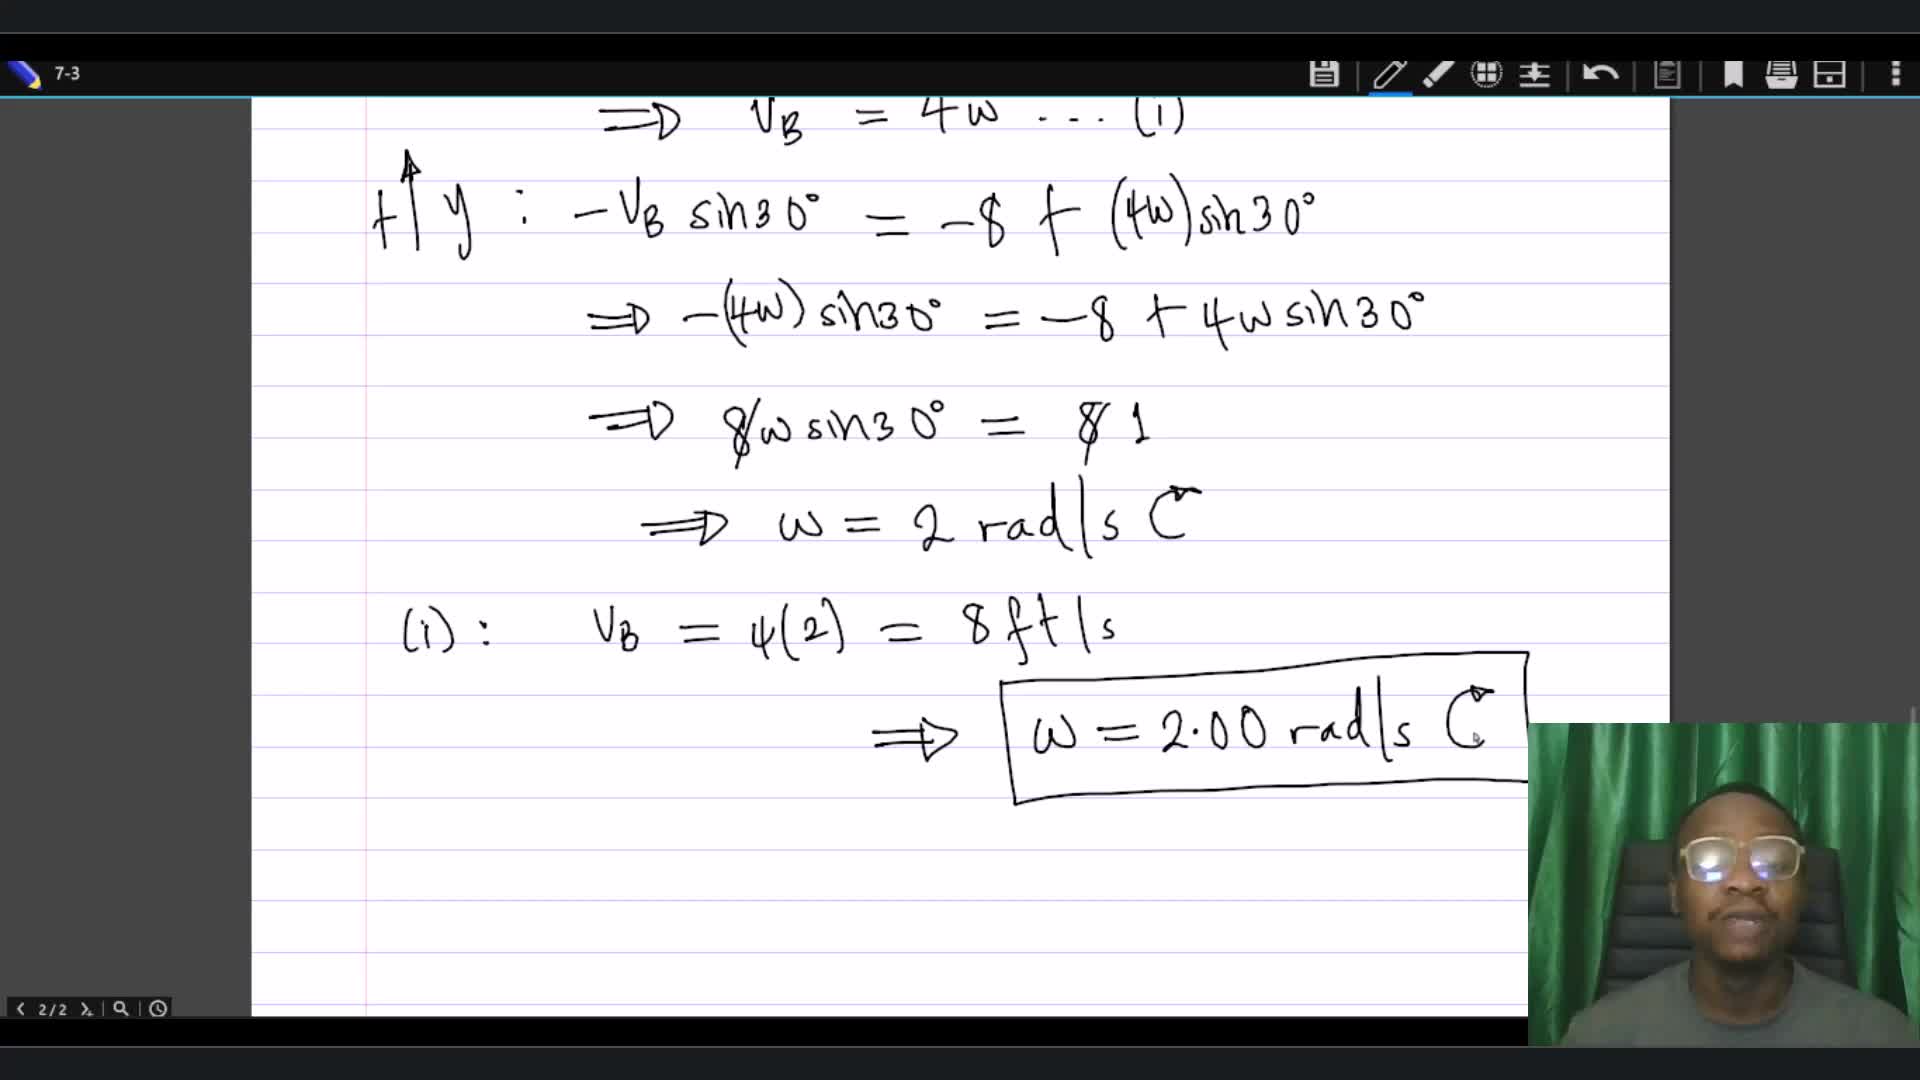 7-3
⇒ VB = 4ω ... (i)
+↑ y : -VB sin30° = -8 + (4ω)sin30°
⇒ -(4ω) sin30° = -8 + 4ω sin30°
⇒ 8ω sin30° = 8 1
⇒ ω = 2 rad/s ↺
(i) : VB = 4(2) = 8 ft/s
⇒ ω = 2.00 rad/s ↺
2/2